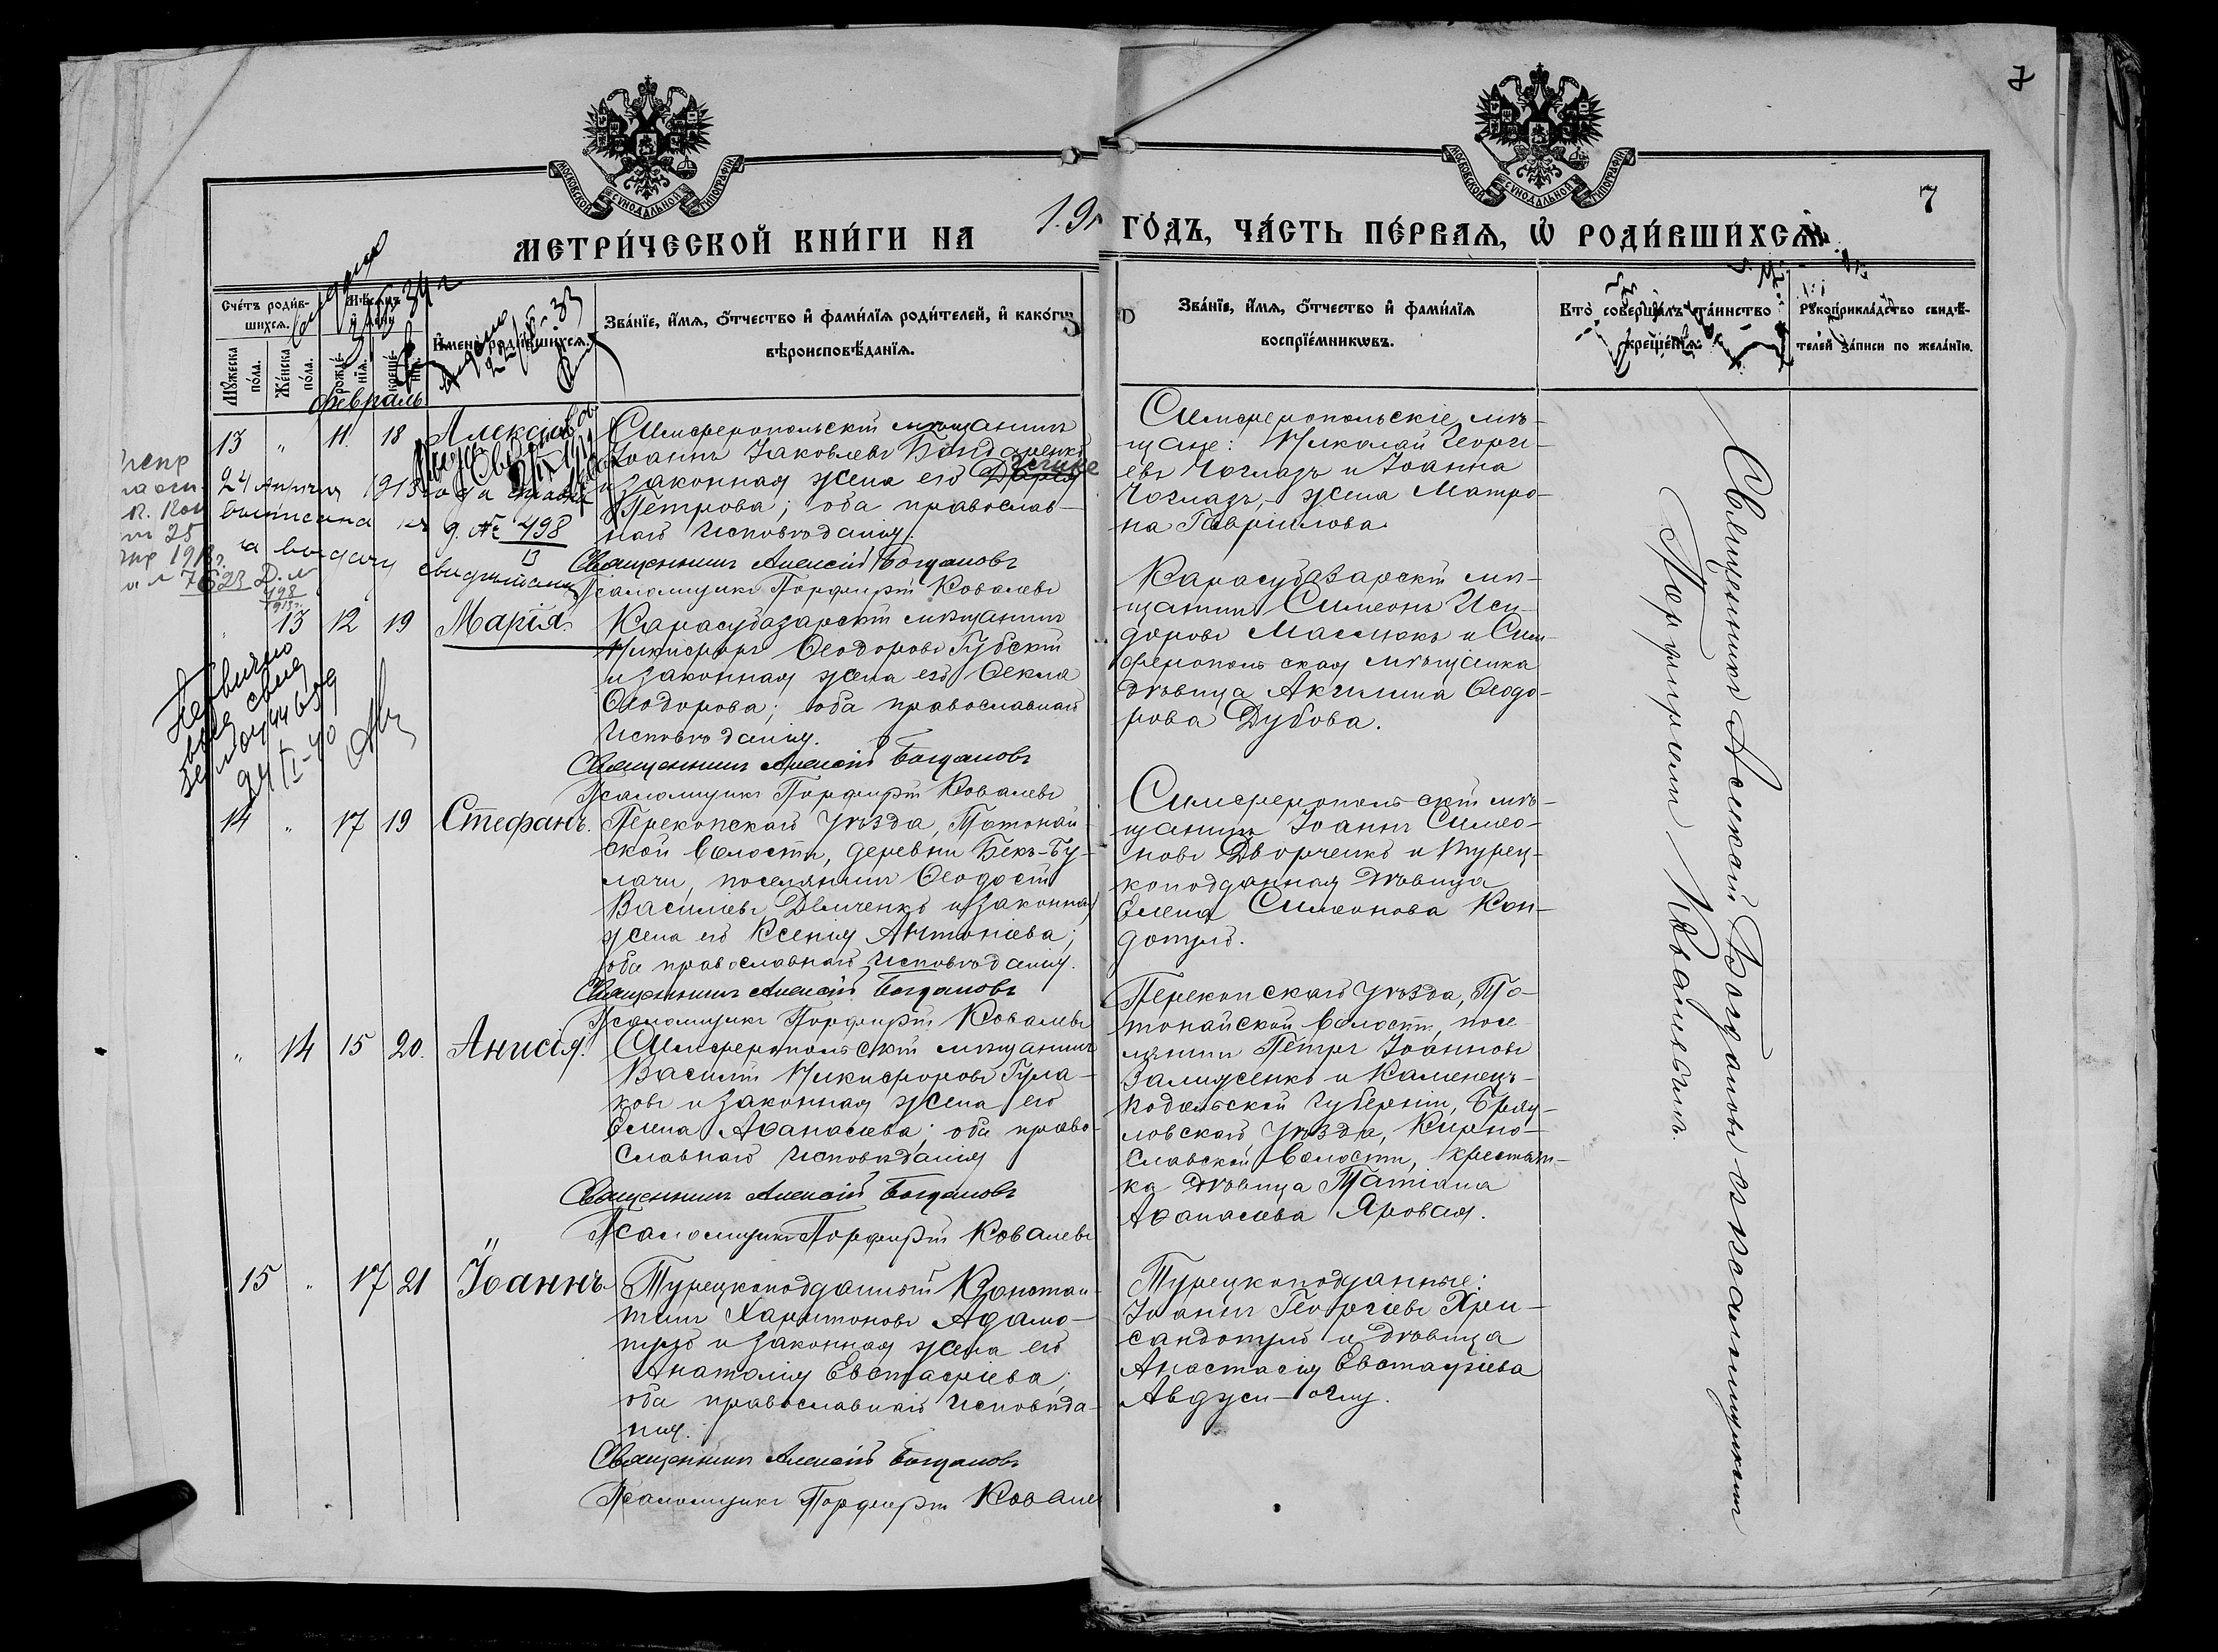 7
7
МОСКОВСКОЙ СѴНОДАЛЬНОЙ ТИПОГРАФІИ
МОСКОВСКОЙ СѴНОДАЛЬНОЙ ТИПОГРАФІИ
МЕТРИ́ЧЕСКОЙ КНИ́ГИ НА 19 ГО́ДЪ, ЧА́СТЬ ПЕ́РВАЯ, Ѡ РОДИ́ВШИХСЯ.
Сче́тъ роди́в-
шихся.
Му́жеска
по́ла.
Же́нска
по́ла.
Мѣ́сяцъ
и҆ де́нь
рожде́-
нїѧ.
креще́-
нїѧ.
И҆мена̀ роди́вшихся.
Зва́нїе, и҆́мя, ѻ҆́тчество и҆ фами́лїя роди́телей, и҆ како́гѡ
вѣроисповѣ́данїя.
Зва́нїе, и҆́мя, ѻ҆́тчество и҆ фами́лїя
воспрїе́мникѡвъ.
Кто̀ соверша́лъ та́инство
креще́нїѧ.
Рꙋкоприкла́дство свидѣ́-
телей за́писи по жела́нїю.
февраль
13 " 11. 18 Алексій
Симферопольскій мѣщанинъ
Іоаннъ Іаковлевъ Бондаренко
и законная жена его
Петрова; оба православ-
наго исповѣданія.
Священникъ Алексій Богдановъ
Псаломщикъ Порфирій Ковалевъ
24 Апрѣля 1913 года
выписана
д. № 498
за выдачу свидѣтельства
Симферопольскіе мѣ-
щане: Николай Георгі-
евъ Чоглазъ и Іоанна
Чоглазъ,- жена Матро-
на Гавріилова.
" 13 12 19 Марія.
Карасубазарскій мѣщанинъ
Никифоръ Ѳеодоровъ Губскій
и законная жена его Ѳекла
Ѳеодорова; оба православнаго
исповѣданія.
Священникъ Алексій Богдановъ
Псаломщикъ Порфирій Ковалевъ
Карасубазарскій мѣ-
щанинъ Симеонъ Иси-
доровъ Маслюкъ и Сим-
феропольская мѣщанка
дѣвица Акилина Ѳеодо-
рова Дубова.
14 " 17 19 Стефанъ.
Перекопскаго уѣзда, Протонай-
ской волости, деревни Бекъ-Бу-
лачи, поселянинъ Ѳеодосій
Василіевъ Демченко и законная
жена его Ксенія Антоніева;
оба православнаго исповѣданія.
Священникъ Алексій Богдановъ
Псаломщикъ Порфирій Ковалевъ
Симферопольскій мѣ-
щанинъ Іоаннъ Симео-
новъ Дворченко и турец-
коподданная дѣвица
Елена Симеонова Кон-
догуло.
" 14 15 20. Анисія.
Симферопольскій мѣщанинъ
Василій Никифоровъ Гула-
ковъ и законная жена его
Елена Аѳанасіева; оба право-
славнаго исповѣданія
Священникъ Алексій Богдановъ
Псаломщикъ Порфирій Ковалевъ
Перекопскаго уѣзда, Про-
тонайской волости, посе-
лянинъ Петръ Іоанновъ
Залиженко и Каменецъ-
Подольской губерніи, Брац-
ловскаго уѣзда, Кирно-
славской волости, крестьян-
ка дѣвица Татіана
Аѳанасіева Яровая.
15 " 17 21 Іоаннъ
Турецкоподданный Констан-
тинъ Харитоновъ Адамо-
пуло и законная жена его
Анатолія Евстафіева;
оба православнаго исповѣда-
нія.
Священникъ Алексій Богдановъ
Псаломщикъ Порфирій Ковалев
Турецкоподданные:
Іоаннъ Георгіевъ Хри-
сандопуло и дѣвица
Анастасія Евстафіева
Авджи-оглу.
Священникъ Алексій Богдановъ съ псаломщикомъ
Порфиріемъ Ковалевымъ.